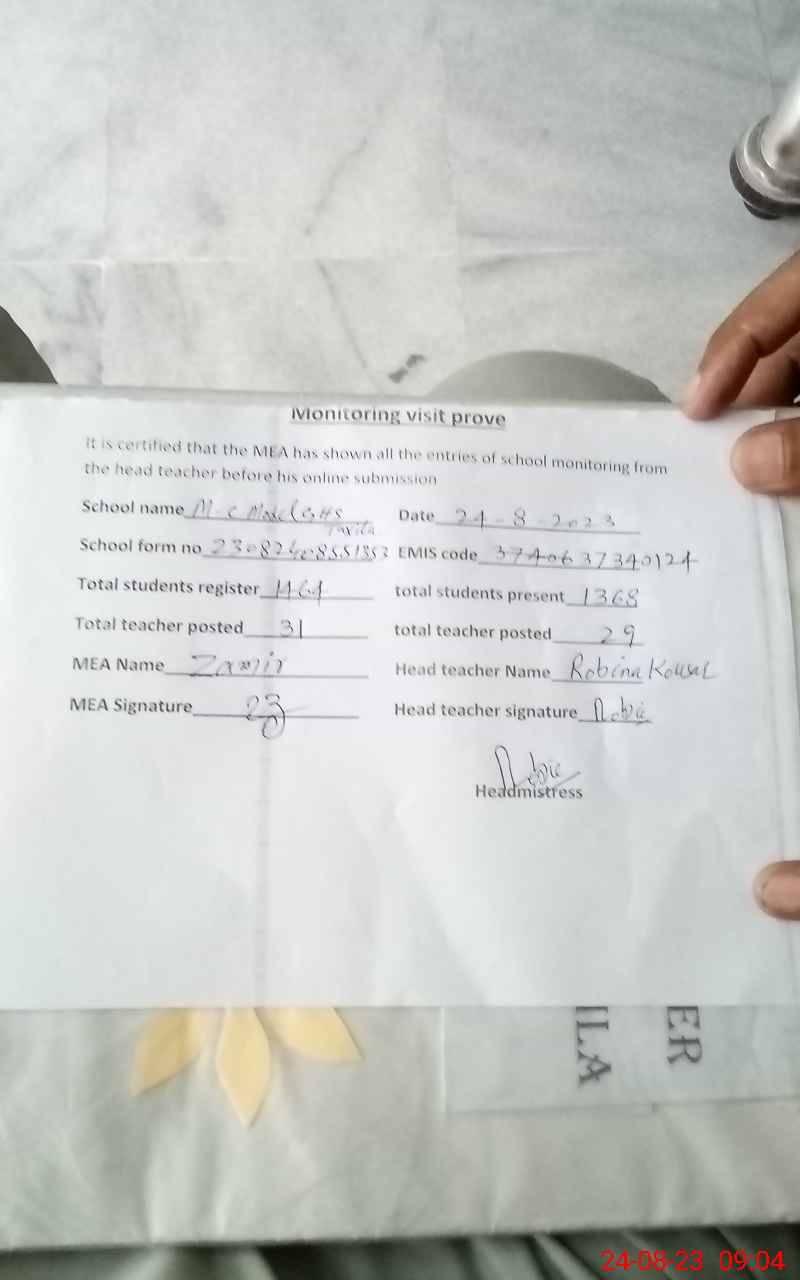 Monitoring visit prove
It is certified that the MEA has shown all the entries of school monitoring from
the head teacher before his online submission
School name M.C Model GHS Taxila Date 24-8-2023
School form no EMIS code 37406 37340124
Total students register 1464 total students present 1368
Total teacher posted 31 total teacher posted 29
MEA Name Zamir Head teacher Name Robina Kousar
MEA Signature Head teacher signature
Headmistress
ER
ILA
24-08-23 09:04